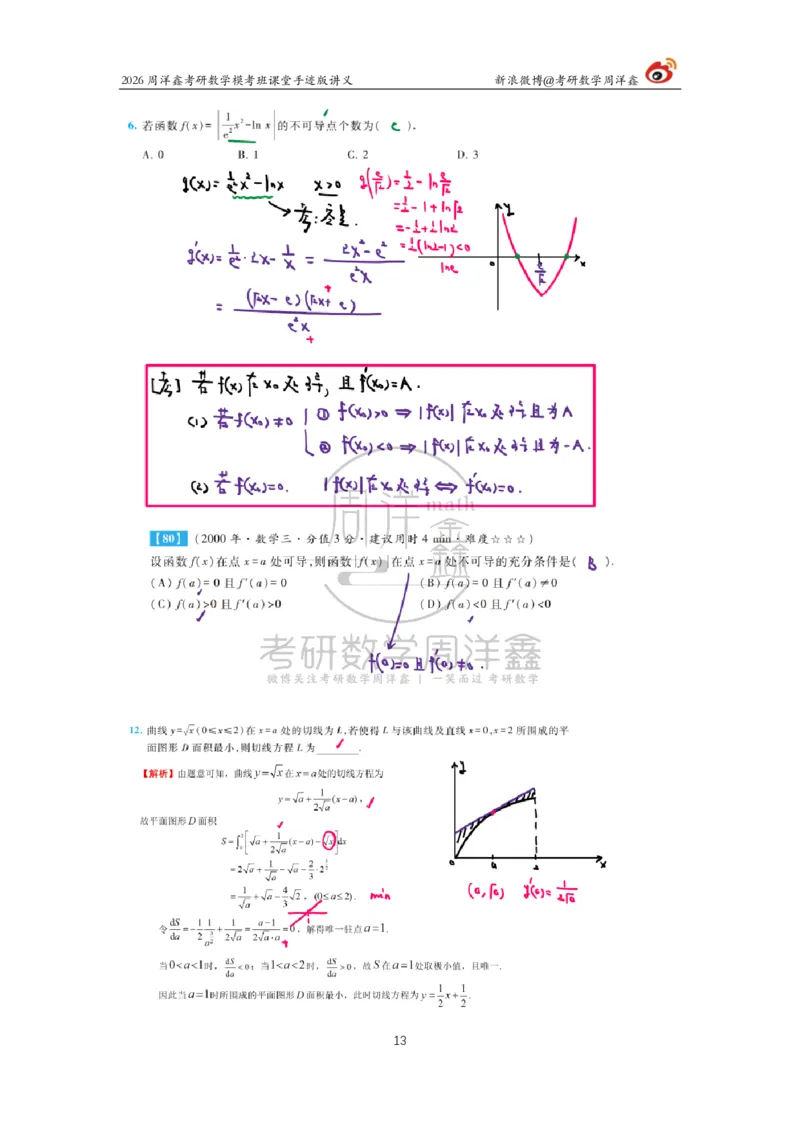 2026周洋鑫考研数学模考班课堂手迹版讲义 新浪微博@考研数学周洋鑫
6. 若函数 f(x)=|1/e² x²-ln x| 的不可导点个数为( C ).
A. 0 B. 1 C. 2 D. 3
g(x)=1/e² x²-lnx x>0 g(e/√2)=1/2-ln e/√2
=1/2-1+ln√2
=-1/2+1/2 ln2
=1/2(ln2-1)<0
lne
y
o
e/√2
x
g'(x)=1/e²·2x-1/x=(2x²-e²)/(e²x)
=(√2x-e)(√2x+e)/(e²x)
+
+
若f(x)在x₀处可导,且f'(x₀)=A.
(1) 若f(x₀)≠0 ① f(x₀)>0 ⇒ |f(x)|在x₀处可导且为A
② f(x₀)<0 ⇒ |f(x)|在x₀处可导且为-A.
(2) 若f(x₀)=0. |f(x)|在x₀处可导 ⇔ f'(x₀)=0.
周洋鑫
math
【80】 (2000年·数学三·分值3分·建议用时4 min·难度☆☆☆)
设函数 f(x)在点 x=a 处可导,则函数|f(x)|在点 x=a 处不可导的充分条件是( B ).
(A) f(a)=0 且 f'(a)=0 (B) f(a)=0 且 f'(a)≠0
(C) f(a)>0 且 f'(a)>0 (D) f(a)<0 且 f'(a)<0
f(a)=0且f'(a)≠0.
考研数学周洋鑫
微博关注考研数学周洋鑫 | 一笑而过 考研数学
12. 曲线 y=√x (0≤x≤2)在 x=a 处的切线为 L,若使得 L 与该曲线及直线 x=0,x=2 所围成的平
面图形 D 面积最小,则切线方程 L 为______.
【解析】由题意可知，曲线 y=√x 在 x=a 处的切线方程为
y=√a+1/(2√a)(x-a)，
故平面图形D面积
S=∫₀²[√a+1/(2√a)(x-a)-√x]dx
=2√a+1/√a-√a-2/3·2^(3/2)
=1/√a+√a-4/3√2，(0≤a≤2). min
令 dS/da=-1/2 1/a^(3/2)+1/(2√a)=(a-1)/(2√a·a)=0，解得唯一驻点 a=1.
+
当0<a<1时，dS/da<0；当1<a<2时，dS/da>0，故S在a=1处取极小值，且唯一.
因此当a=1时所围成的平面图形D面积最小，此时切线方程为 y=1/2 x+1/2.
y
o
a
2
x
(a,√a) y'(a)=1/(2√a)
13